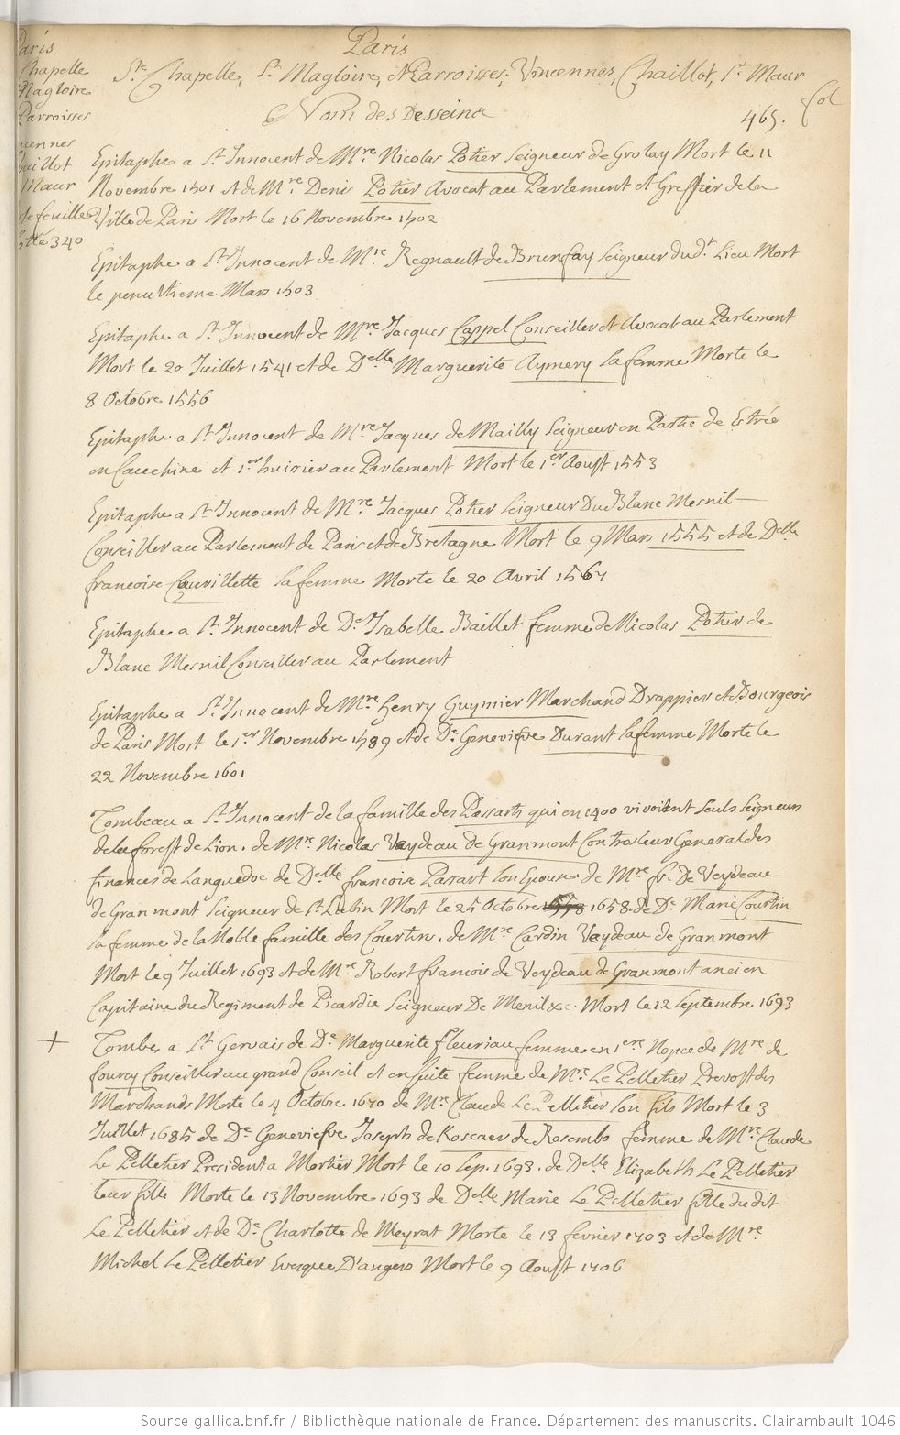 Paris
Ste Chapelle, St Magloire, & Parroisses, Vincennes, Chaillot, St Maur
Nom des Desseins
465. fol
Paris
Chapelle
Magloire
Parroisses
cennes
haillot
Maur
feuille
340
Epitaphe a St Innocent de Mre Nicolas Potier Seigneur de Groslay Mort le 11
Novembre 1501 et de Mre Denis Potier Avocat au Parlement et Greffier de la
Ville de Paris Mort le 16 Novembre 1502
Epitaphe a St Innocent de Mre Regnault de Brunfay Seigneur du dt Lieu Mort
le penultieme Mars 1503
Epitaphe a St Innocent de Mre Jacques Cappel Conseiller et Avocat au Parlement
Mort le 20 Juillet 1541 et de Delle Marguerite Aymery sa femme Morte le
8 Octobre 1556
Epitaphe a St Innocent de Mre Jacques de Mailly Seigneur en Partie de Estrée
en Cauchine et 1er huisier au Parlement Mort le 1er Aoust 1553
Epitaphe a St Innocent de Mre Jacques Potier Seigneur Du Blanc Mesnil
Conseiller au Parlement de Paris et de Bretagne Mort le 9 Mars 1555 et de Delle
francoise Cueuillette sa femme Morte le 20 Avril 1567
Epitaphe a St Innocent de De Isabelle Baillet femme de Nicolas Potier de
Blanc Mesnil Conseiller au Parlement
Epitaphe a St Innocent de Mre Henry Guynier Marchand Drappier et Bourgeois
de Paris Mort le 1er Novembre 1589 et de De Geneviefve Durant sa femme Morte le
22 Novembre 1601
Tombeau a St Innocent de la famille des Passarts qui en 1400 vivoient seuls seigneurs
de la forest de Lion. de Mre Nicolas Veydeau de Granmont Controlleur General des
finances de Languedoc de Delle francoise Passart son Epouse de Mre fr. De Veydeau
de Granmont Seigneur de St Lubin Mort le 25 Octobre 1658 de De Marie Courtin
sa femme de la Noble famille des Courtins. de Mre Cardin Veydeau de Granmont
Mort le 9 Juillet 1693 et de Mre Robert francois de Veydeau de Granmont ancien
Capitaine du Regiment de Picardie Seigneur De Menil &c. Mort le 12 Septembre 1693
+ Tombe a St Gervais de De Marguerite fleuriau femme en 1eres Nopces de Mre de
fourcy Conseiller au grand Conseil et en suite femme de Mre Le Pelletier Prevost des
Marchands Morte le 4 Octobre 1670 de Mre Claude Le Pelletier son fils Mort le 3
Juillet 1685 de De Geneviefve Joseph de Kosener de Rosembo femme de Mre Claude
Le Pelletier President a Mortier Mort le 10 Sep. 1693. de Delle Elizabeth Le Pelletier
leur fille Morte le 13 Novembre 1693 de Delle Marie Le Pelletier fille du dit
Le Pelletier et de De Charlotte de Meyrat Morte le 13 février 1703 et de Mre
Michel Le Pelletier Evesque D'angers Mort le 9 Aoust 1706
Source gallica.bnf.fr / Bibliothèque nationale de France. Département des manuscrits. Clairambault 1046